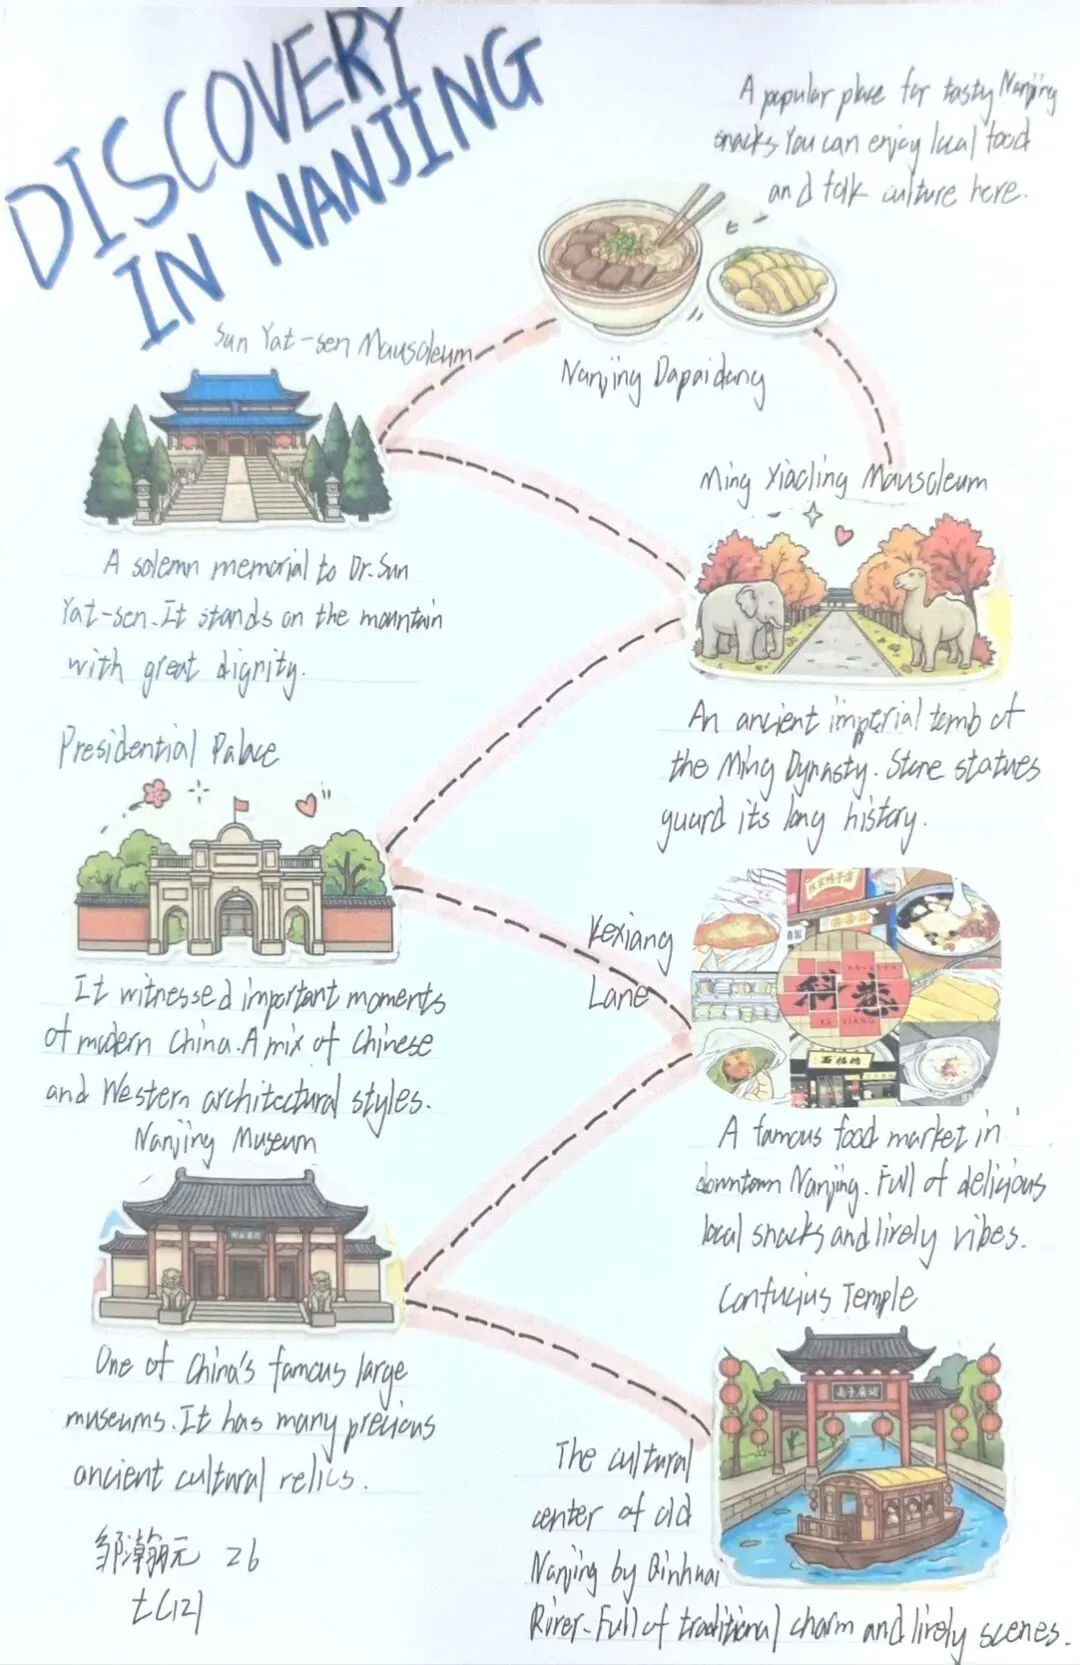 DISCOVERY
IN NANJING
A popular place for tasty Nanjing
snacks You can enjoy local food
and folk culture here.
Nanjing Dapaidang
Sun Yat-sen Mausoleum
A solemn memorial to Dr. Sun
Yat-sen. It stands on the mountain
with great dignity.
Ming Xiaoling Mausoleum
An ancient imperial tomb of
the Ming Dynasty. Stone statues
guard its long history.
Presidential Palace
It witnessed important moments
of modern China. A mix of Chinese
and Western architectural styles.
Kexiang
Lane
科巷
KE XIANG
A famous food market in
downtown Nanjing. Full of delicious
local snacks and lively vibes.
Nanjing Museum
One of China's famous large
museums. It has many precious
ancient cultural relics.
Confucius Temple
The cultural
center of old
Nanjing by Qinhuai
River. Full of traditional charm and lively scenes.
邹瀚元 26
七(12)